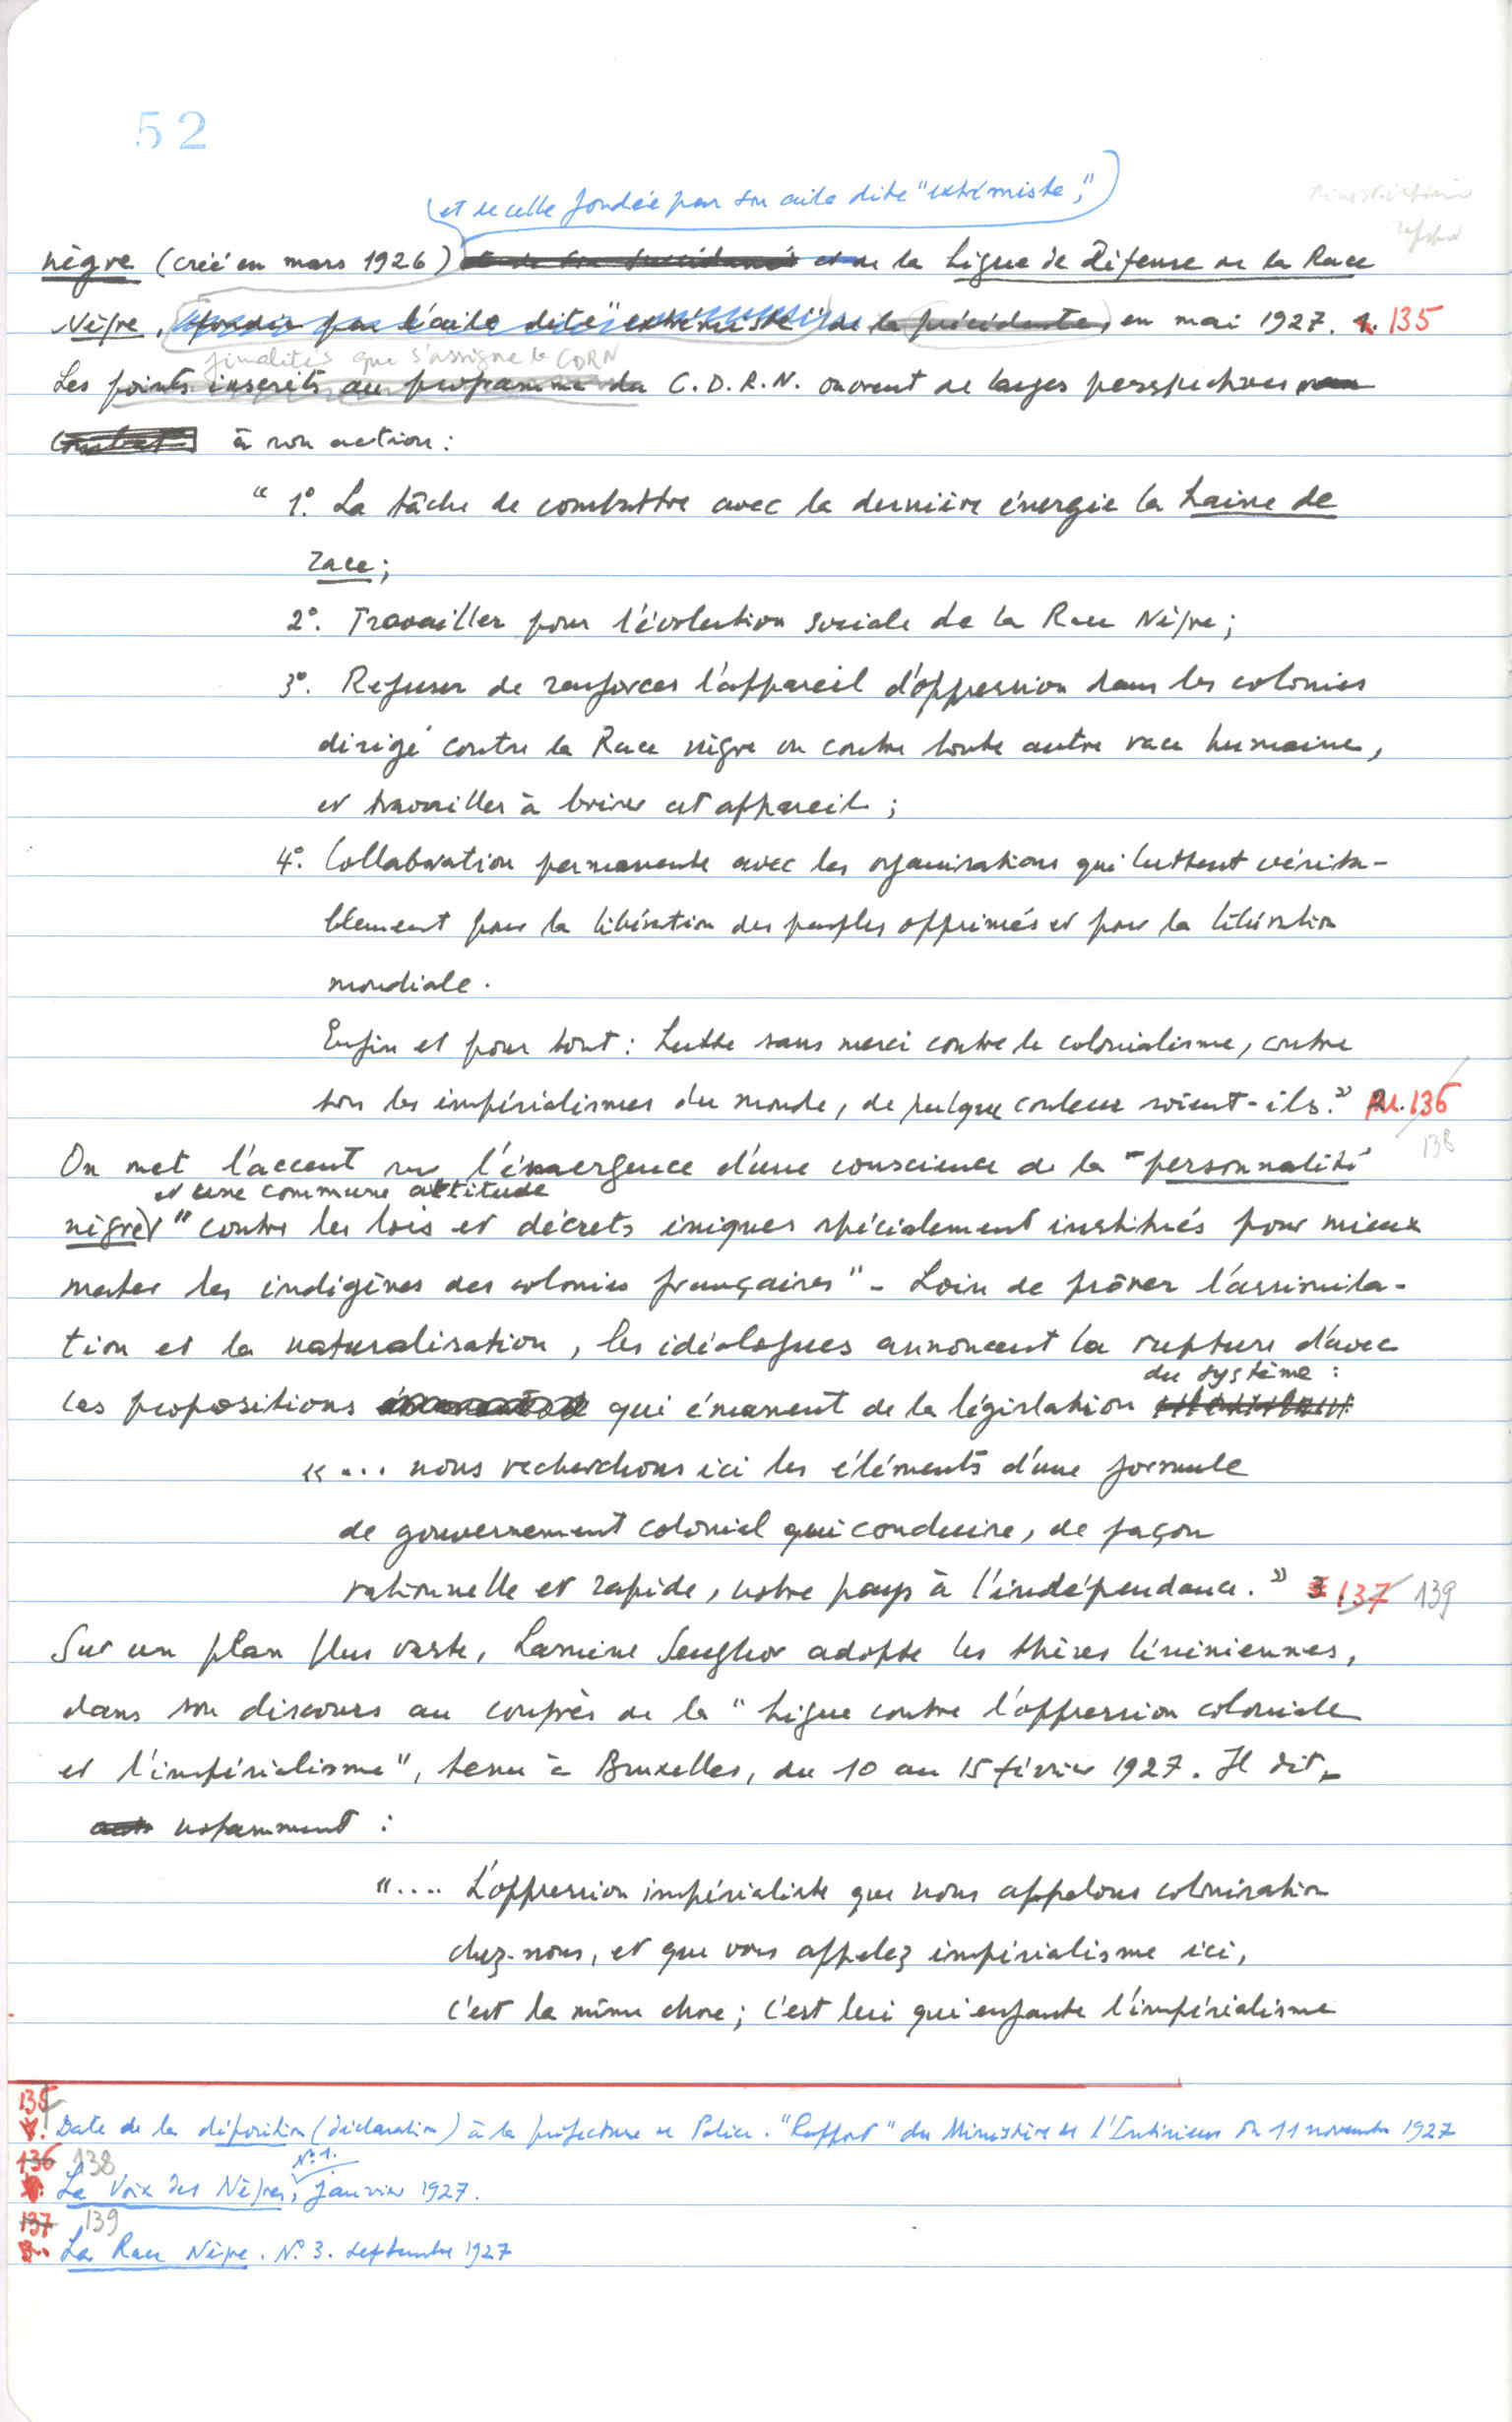 52
et de celle fondée par son aile dite "extrémiste",
nègre (créé en mars 1926) et de la Ligue de Défense de la Race
Nègre, fondée par l'aile dite "extrémiste" de la précédente, en mai 1927. 135
finalités que s'assigne le CDRN
Les points inscrits au programme du C.D.R.N. ouvrent de larges perspectives
à son action :
" 1°. La tâche de combattre avec la dernière énergie la haine de
race ;
2°. Travailler pour l'évolution sociale de la Race Nègre ;
3°. Refuser de renforcer l'appareil d'oppression dans les colonies
dirigé contre la Race nègre ou contre toute autre race humaine,
et travailler à briser cet appareil ;
4°. Collaboration permanente avec les organisations qui luttent vérita-
blement pour la libération des peuples opprimés et pour la libération
mondiale.
Enfin et pour tout : Lutte sans merci contre le colonialisme, contre
tous les impérialismes du monde, de quelque couleur soient-ils." 136
138
On met l'accent sur l'émergence d'une conscience de la "personnalité
et une commune attitude
nègre" "contre les lois et décrets iniques spécialement institués pour mieux
mater les indigènes des colonies françaises" - Loin de prôner l'assimila-
tion et la naturalisation, les idéologues annoncent la rupture d'avec
du système :
les propositions qui émanent de la législation
«... nous recherchons ici les éléments d'une formule
de gouvernement colonial qui conduire, de façon
rationnelle et rapide, notre pays à l'indépendance. » 3 137 139
Sur un plan plus vaste, Lamine Senghor adopte les thèses léniniennes,
dans son discours au congrès de la "Ligue contre l'oppression coloniale
et l'impérialisme", tenu à Bruxelles, du 10 au 15 février 1927. Il dit,
notamment :
".... L'oppression impérialiste que nous appelons colonisation
chez-nous, et que vous appelez impérialisme ici,
c'est la même chose ; c'est lui qui enfante l'impérialisme
135
Date de la déposition (déclaration) à la préfecture de Police. "Rapport" du Ministère de l'Intérieur du 11 novembre 1927
136 138
N°. 1.
La Voix des Nègres, janvier 1927.
137 139
La Race Nègre. N°. 3. septembre 1927